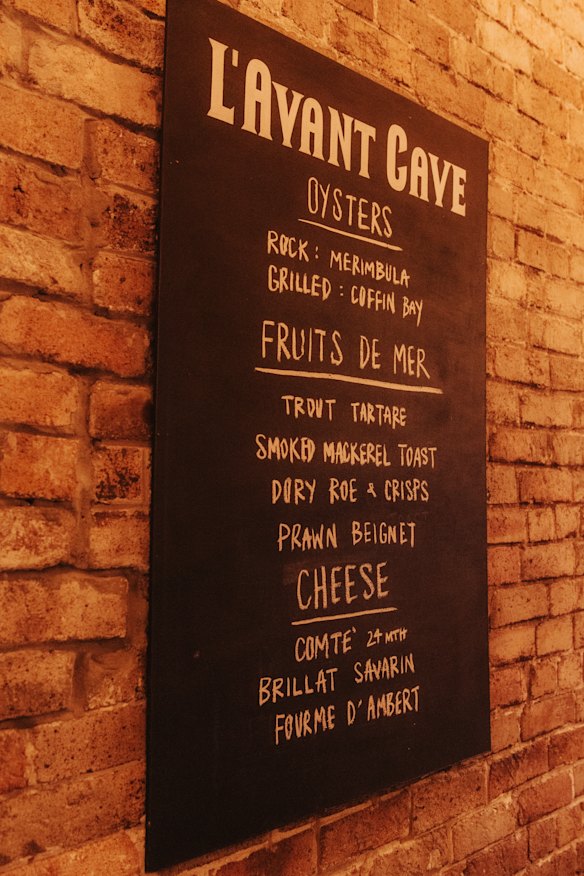 L'AVANT CAVE
OYSTERS
ROCK : MERIMBULA
GRILLED : COFFIN BAY
FRUITS DE MER
TROUT TARTARE
SMOKED MACKEREL TOAST
DORY ROE & CRISPS
PRAWN BEIGNET
CHEESE
COMTE' 24 MTH
BRILLAT SAVARIN
FOURME D'AMBERT